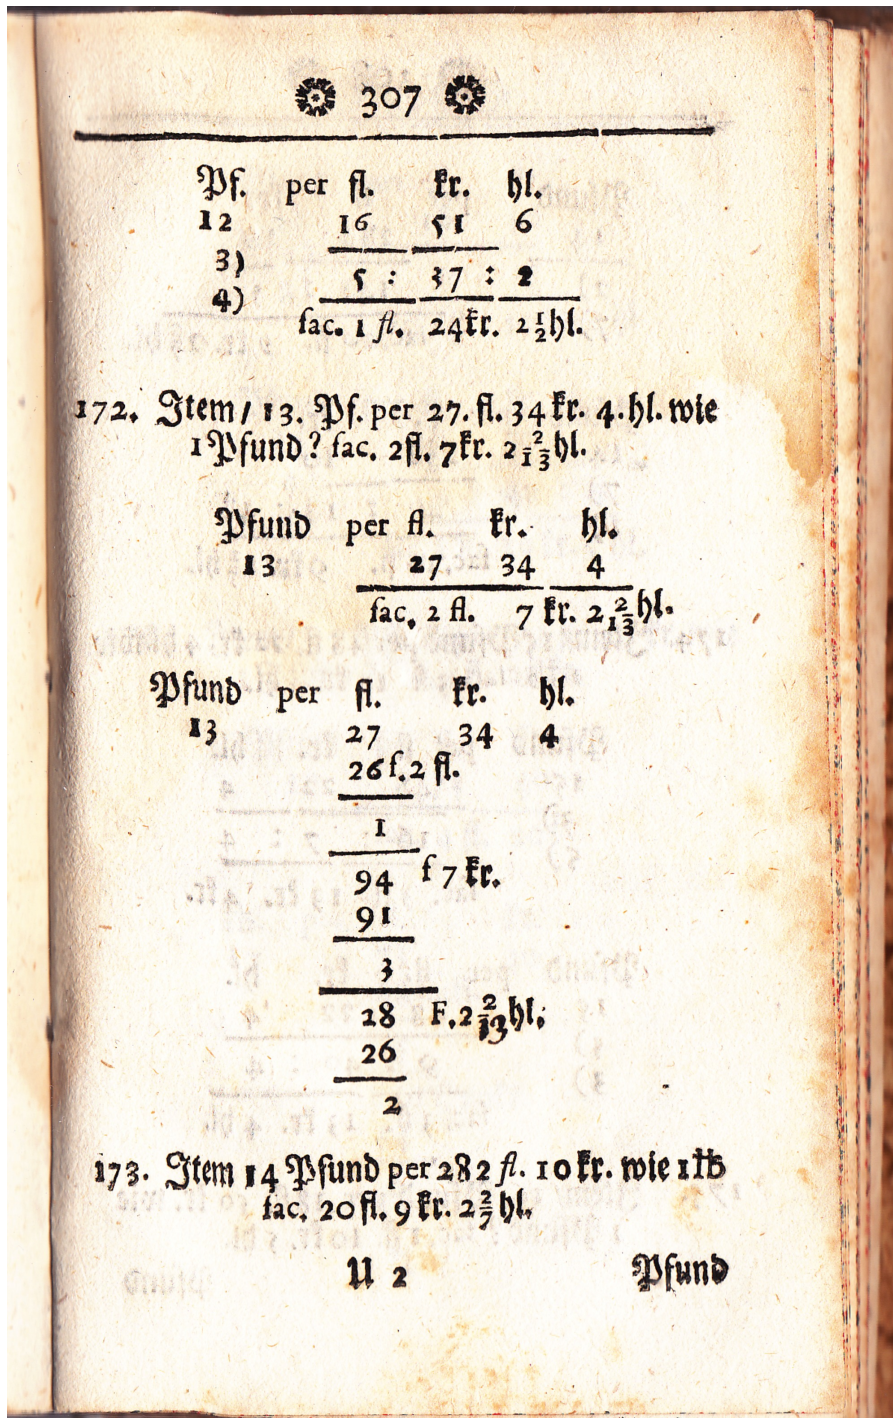 307
Pf. per fl. kr. hl.
12 16 51 6
3)
5 : 37 : 2
4)
fac. 1 fl. 24kr. 2½hl.
172. Item / 13. Pf. per 27. fl. 34 kr. 4. hl. wie
1 Pfund? fac. 2fl. 7kr. 2 2/13 hl.
Pfund per fl. kr. hl.
13 27 34 4
fac. 2 fl. 7 kr. 2 2/13 hl.
Pfund per fl. kr. hl.
13 27 34 4
26 f. 2 fl.
1
94 f 7 kr.
91
3
28 F. 2 2/13 hl.
26
2
173. Item 14 Pfund per 282 fl. 10 kr. wie 1 ℔
fac. 20 fl. 9 kr. 2 2/7 hl.
U 2 Pfund